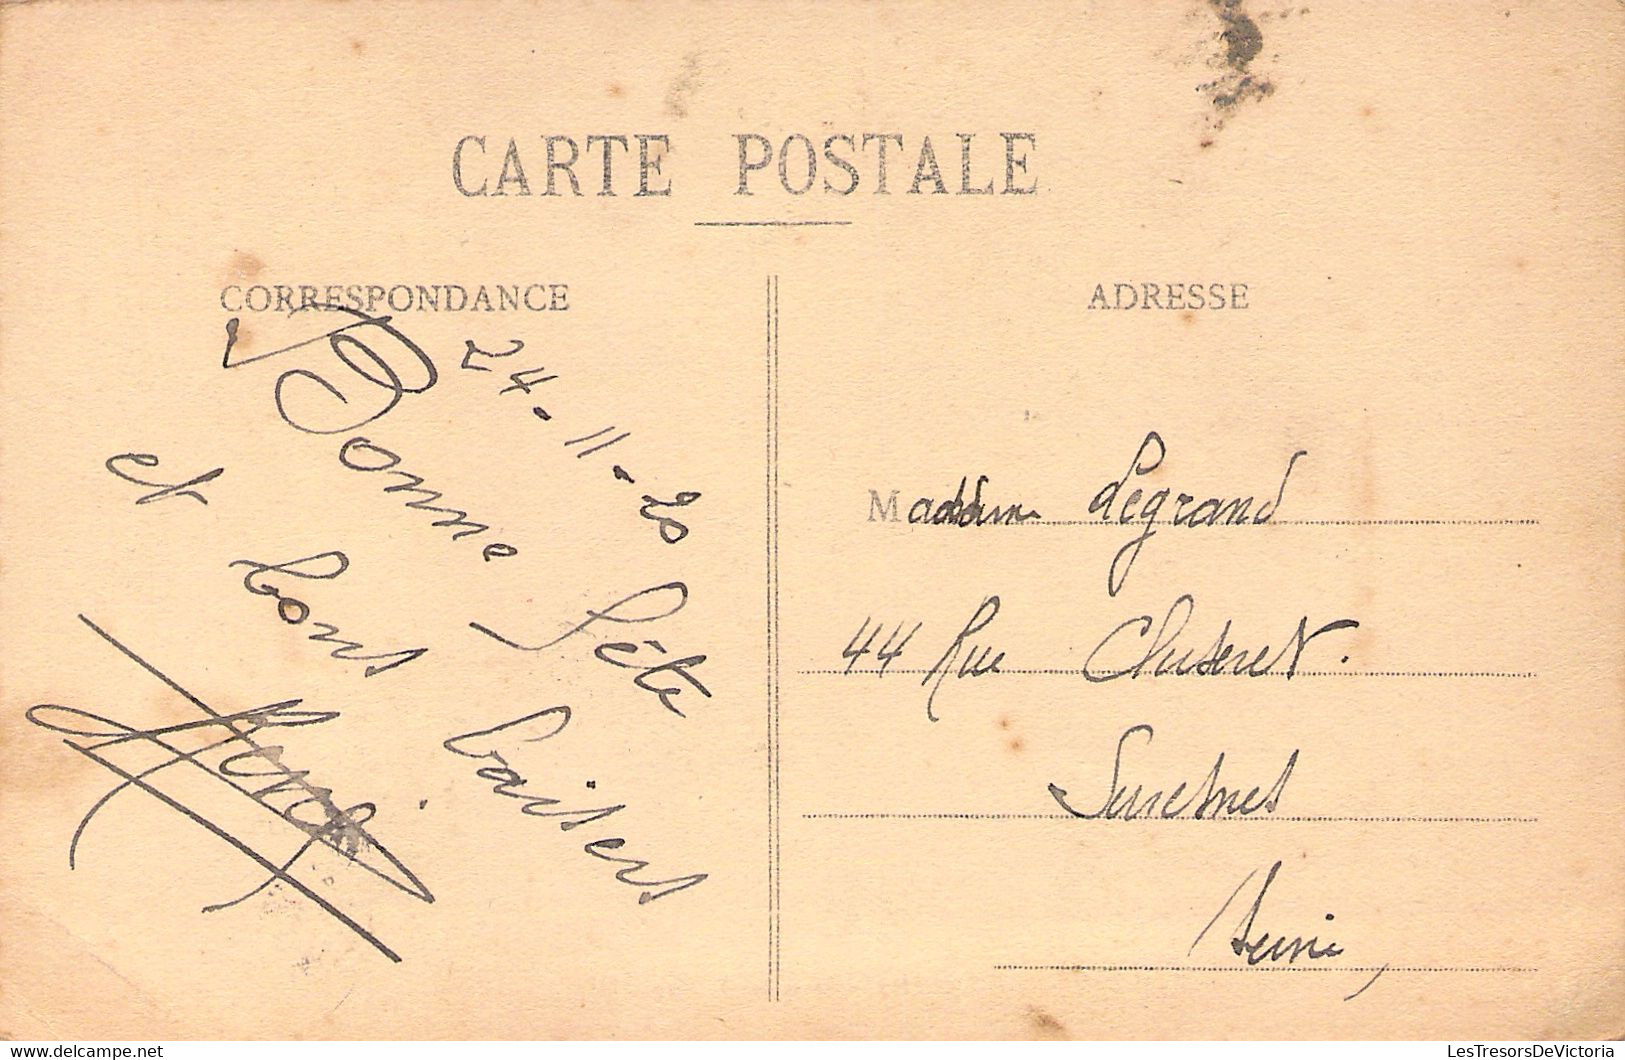 CARTE POSTALE
CORRESPONDANCE
24-11-20
Bonne fête
et bons baisers
ADRESSE
Madame Legrand
44 Rue Cluseret.
Suresnes
Seine,
LesTresorsDeVictoria